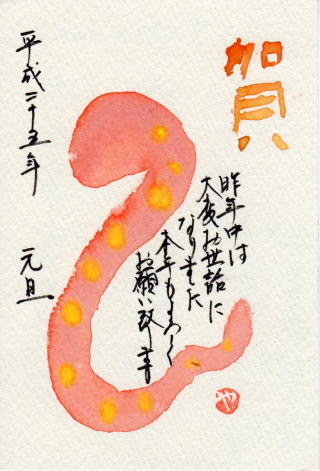 賀
昨年中は
大変お世話に
なりました
本年もよろしく
お願い致します
平成二十五年 元旦
や